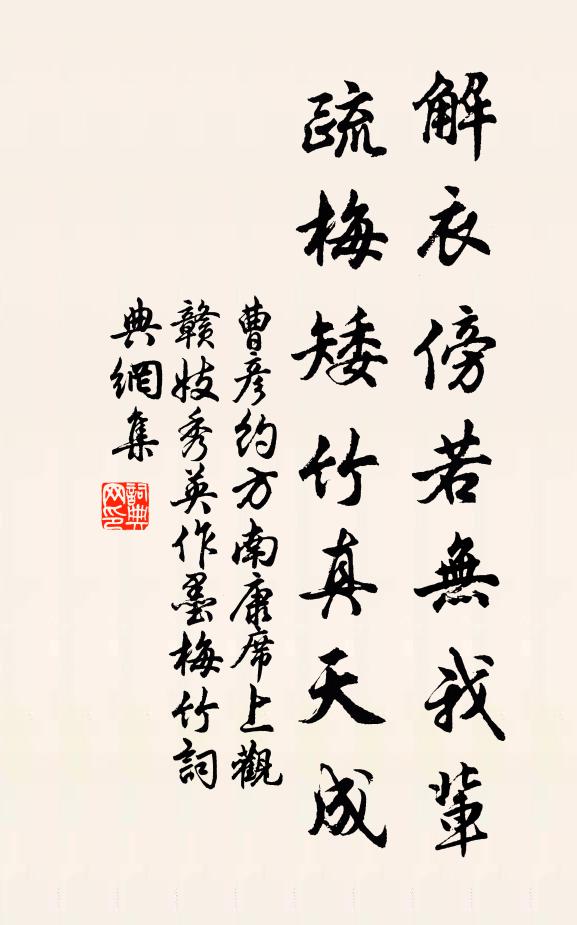 解衣傍若無我輩
疏梅矮竹真天成
曹彥約方南康席上觀
贛妓秀英作墨梅竹詞
典網集
詞典
网印